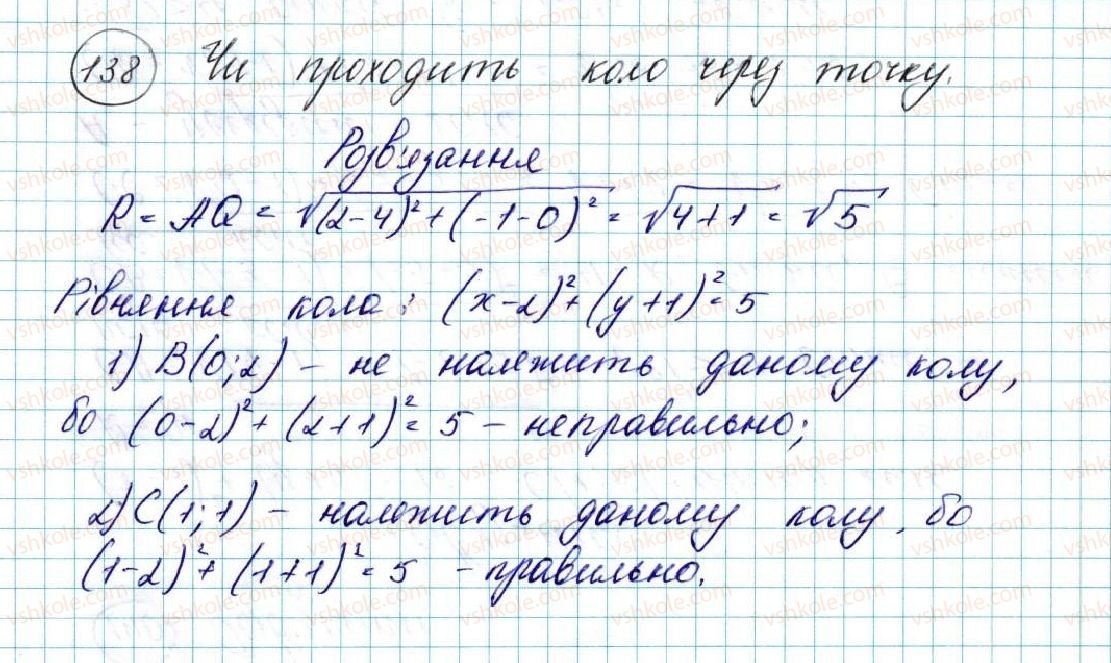 138 Чи проходить коло через точку.
Розв'язання
R = AQ = √(2-4)² + (-1-0)² = √4+1 = √5
Рівняння кола: (x-2)² + (y+1)² = 5
1) B(0;2) - не належить даному колу,
бо (0-2)² + (2+1)² = 5 - неправильно;
2) C(1;1) - належить даному колу, бо
(1-2)² + (1+1)² = 5 - правильно.